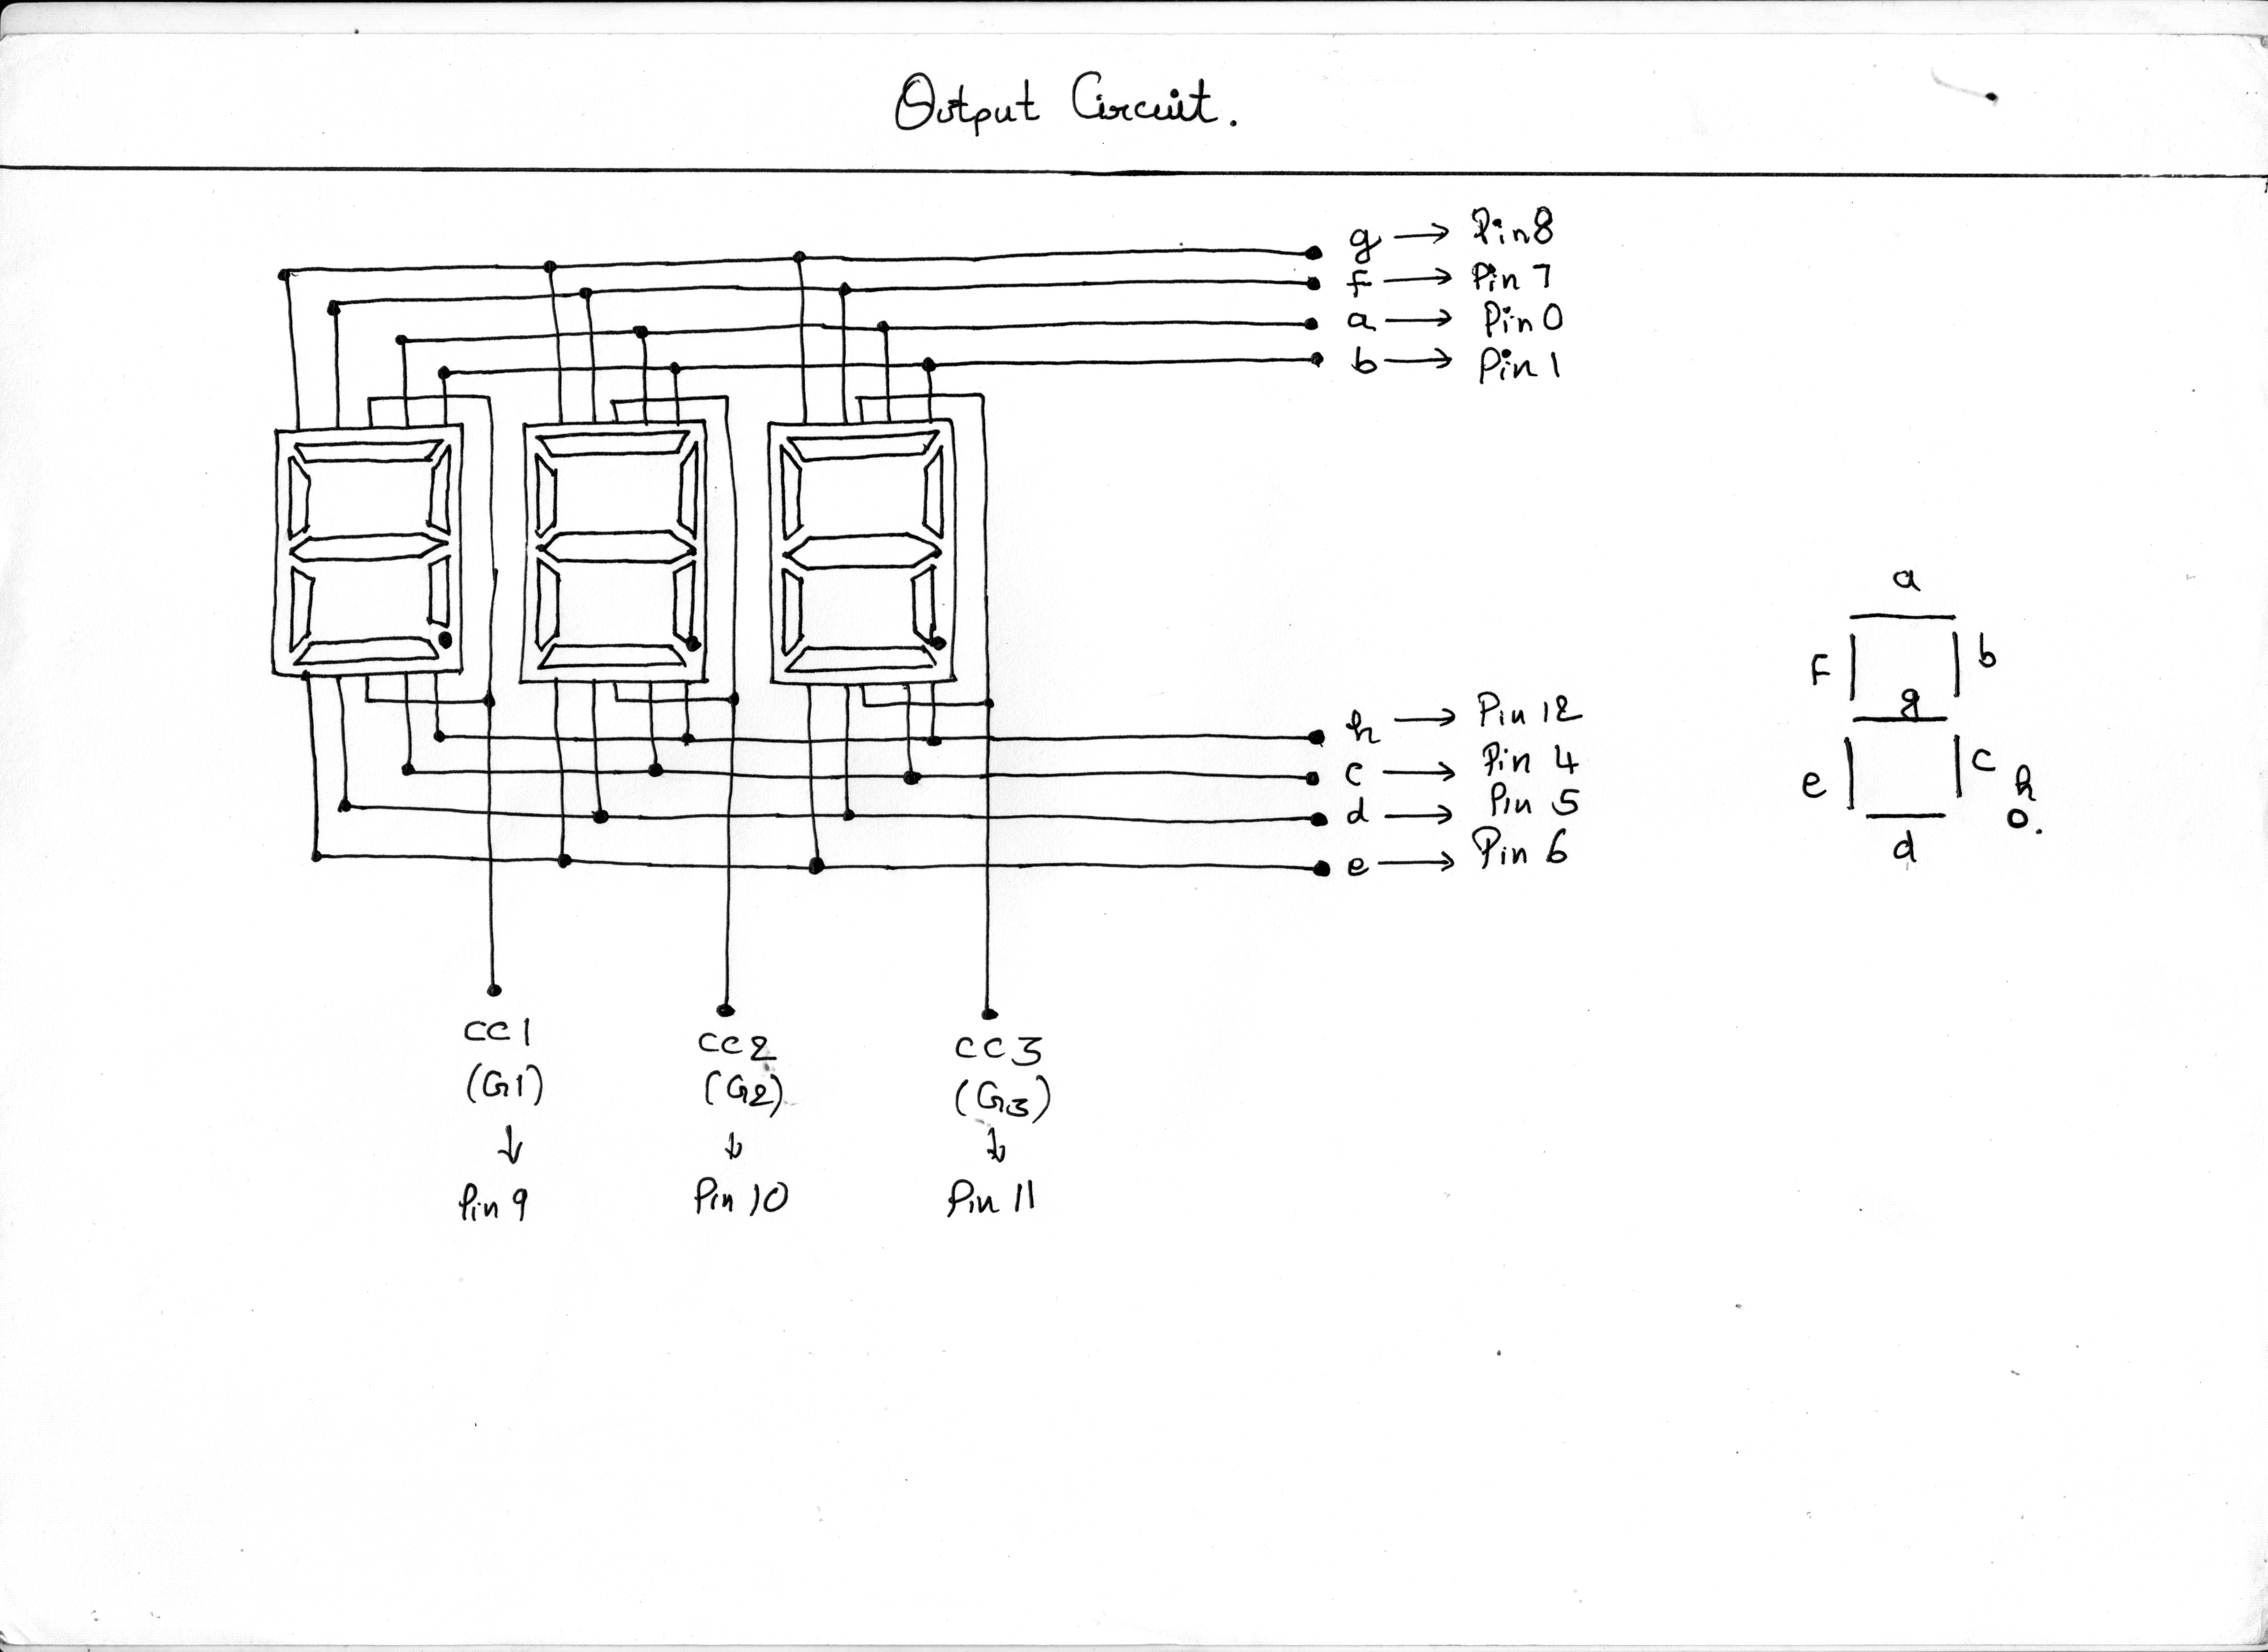 Output Circuit.
g → Pin 8
f → Pin 7
a → Pin 0
b → Pin 1
a
f
b
g
e
c
h
d
h → Pin 12
c → Pin 4
d → Pin 5
e → Pin 6
CC1
(G1)
↓
Pin 9
CC2
(G2)
↓
Pin 10
CC3
(G3)
↓
Pin 11